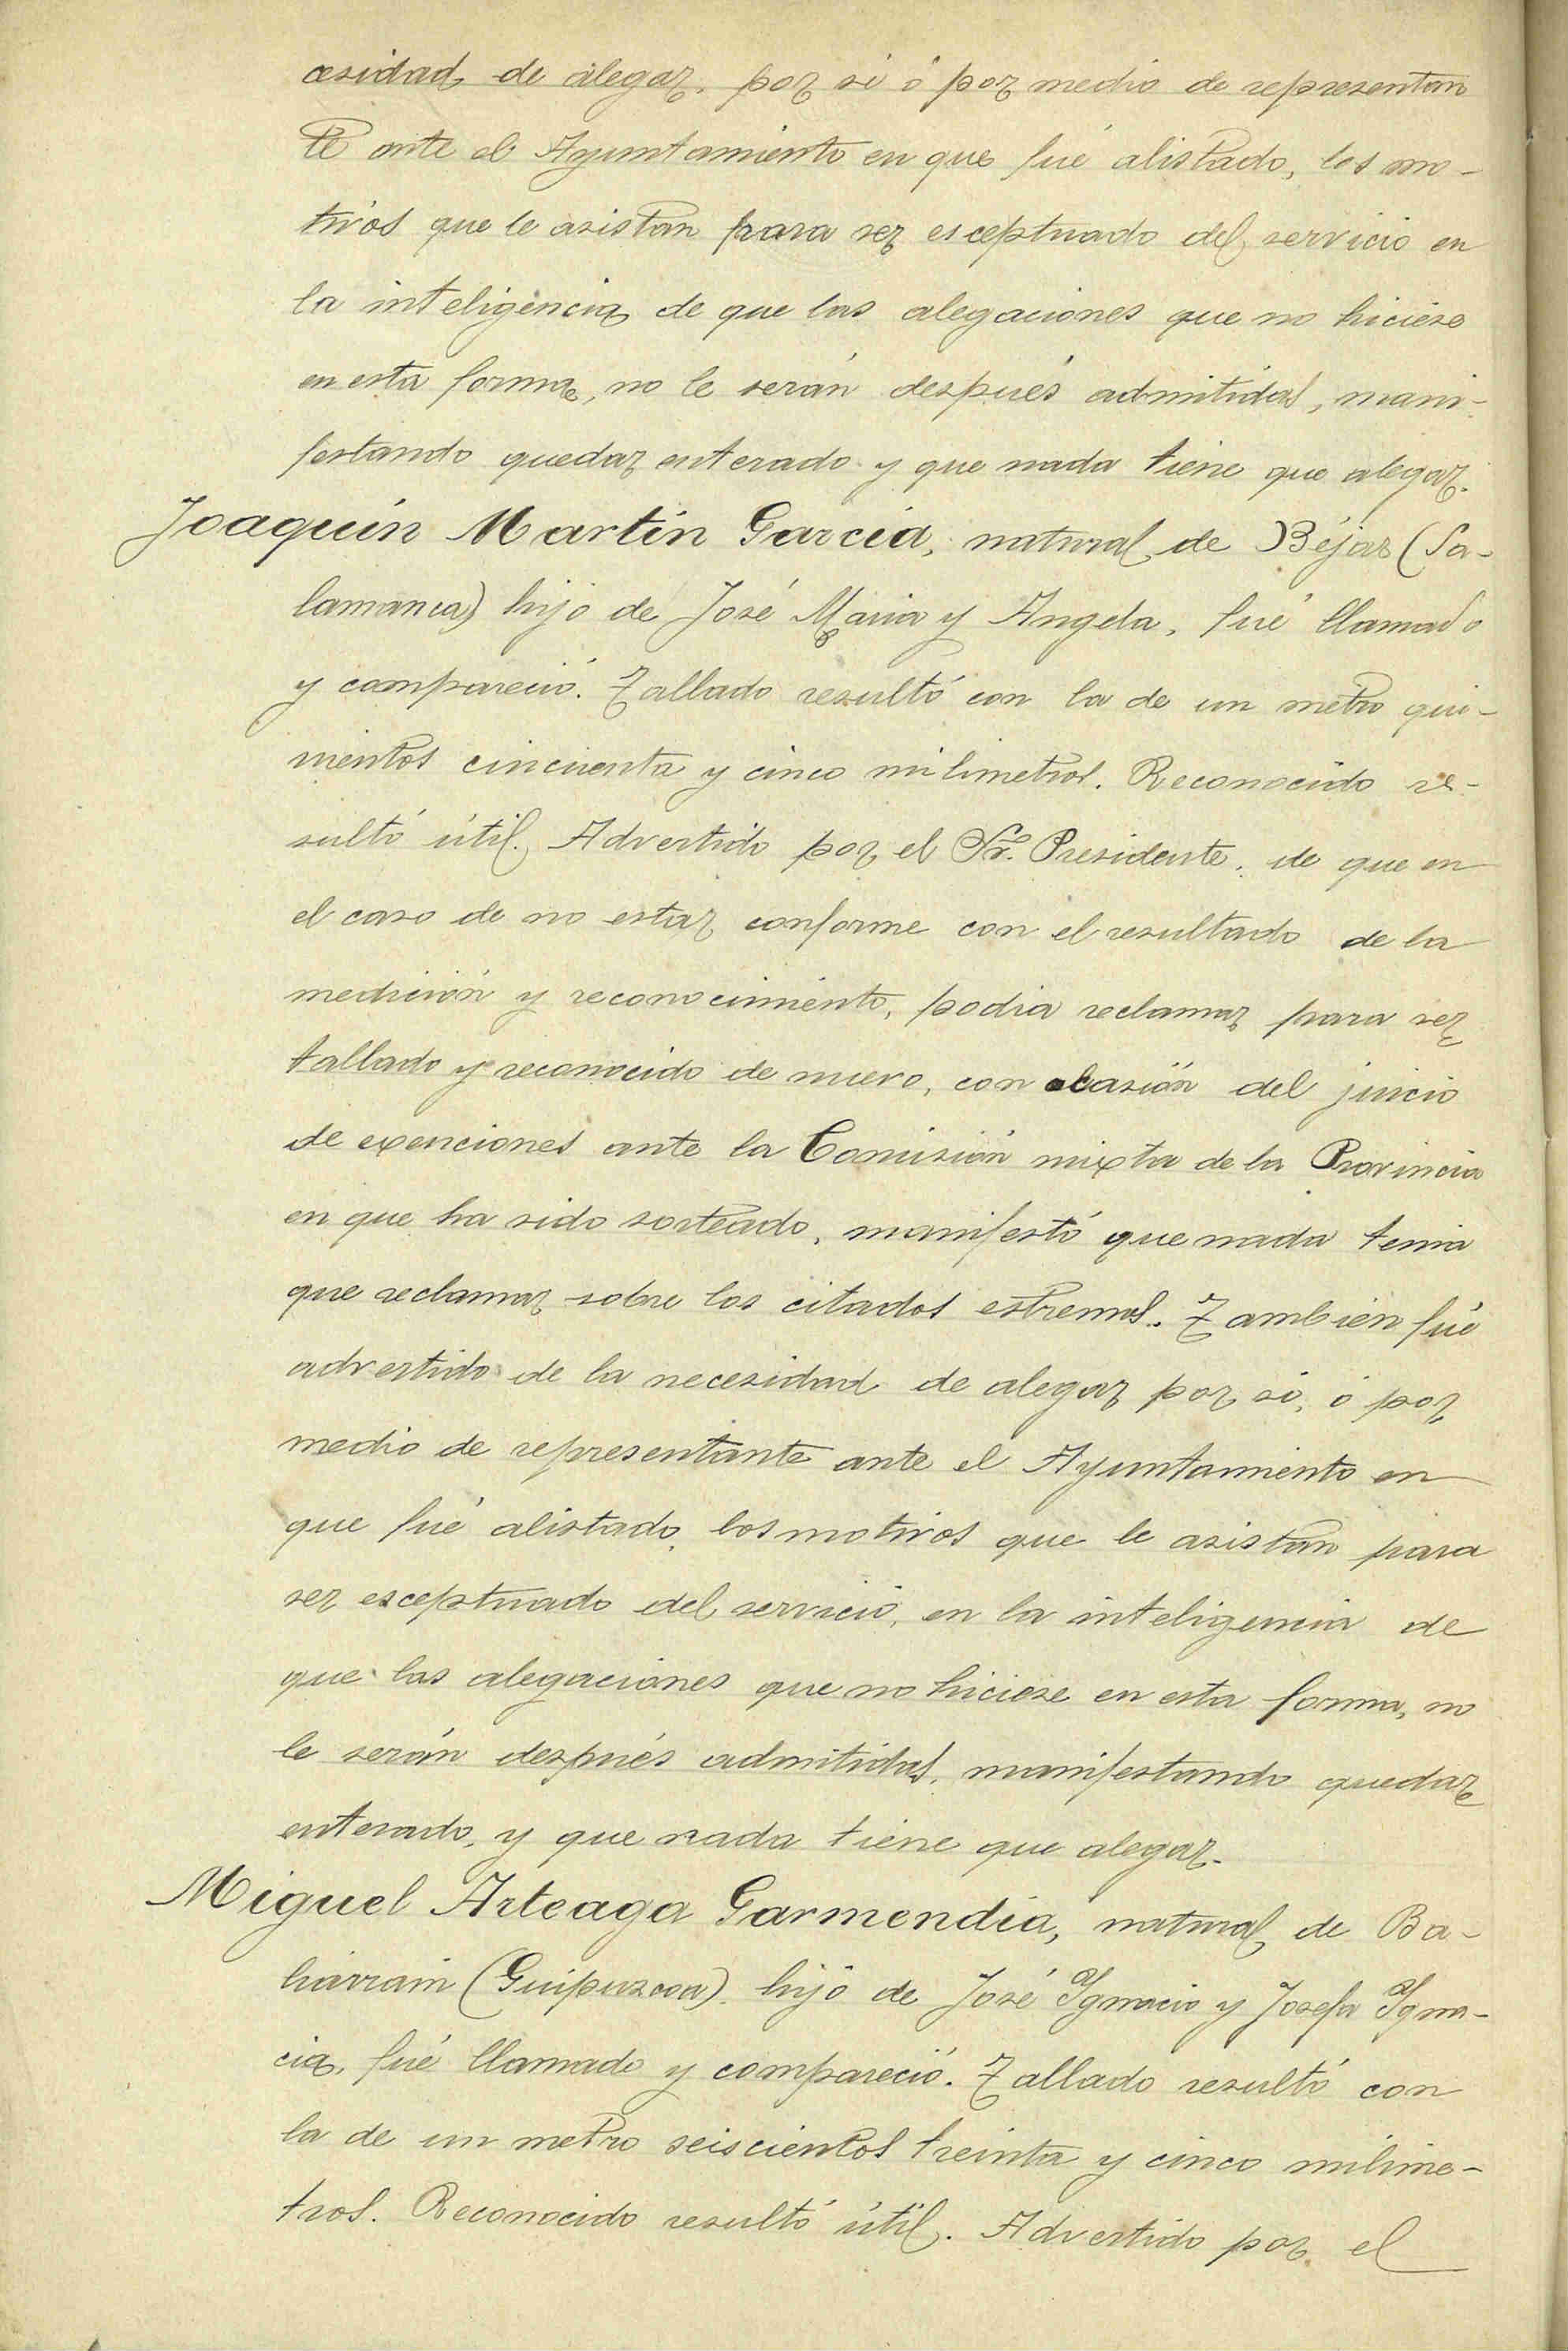 cesidad de alegar, por si ó por medio de representan
te ante el Ayuntamiento en que fué alistado, los mo-
tivos que le asistan para ser esceptuado del servicio en
la inteligencia de que las alegaciones que no hiciese
en esta forma, no le serán después admitidas, mani-
festando quedar enterado y que nada tiene que alegar.
Joaquin Martin Garcia, natural de Béjar (Sa-
lamanca) hijo de José Maria y Angela, fué llamado
y compareció. Tallado resultó con la de un metro qui-
nientos cincuenta y cinco milimetros. Reconocido re-
sultó útil. Advertido por el Sr. Presidente, de que en
el caso de no estar conforme con el resultado de la
medición y reconocimiento, podia reclamar para ser
tallado y reconocido de nuevo, con ocasión del juicio
de exenciones ante la Comisión mixta de la Provincia
en que ha sido sorteado, manifestó que nada tenia
que reclamar sobre los citados estremos. Tambien fué
advertido de la necesidad de alegar por si, ó por
medio de representante ante el Ayuntamiento en
que fué alistado, los motivos que le asistan para
ser esceptuado del servicio, en la inteligencia de
que las alegaciones que no hiciese en esta forma, no
le serán después admitidas, manifestando quedar
enterado, y que nada tiene que alegar.
Miguel Arteaga Garmendia, natural de Ba-
liarrain (Guipuzcoa) hijo de José Ygnacio y Josefa Ygna-
cia, fué llamado y compareció. Tallado resultó con
la de un metro seiscientos treinta y cinco milime-
tros. Reconocido resultó útil. Advertido por el